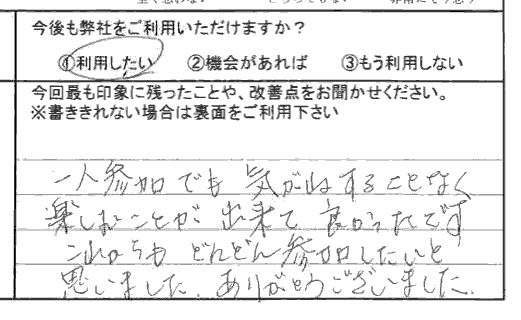 今後も弊社をご利用いただけますか？
①利用したい ②機会があれば ③もう利用しない
今回最も印象に残ったことや、改善点をお聞かせください。
※書ききれない場合は裏面をご利用下さい
一人参加でも気がねすることなく
楽しむことが出来て良かったです
これからもどんどん参加したいと
思いました。ありがとうございました。